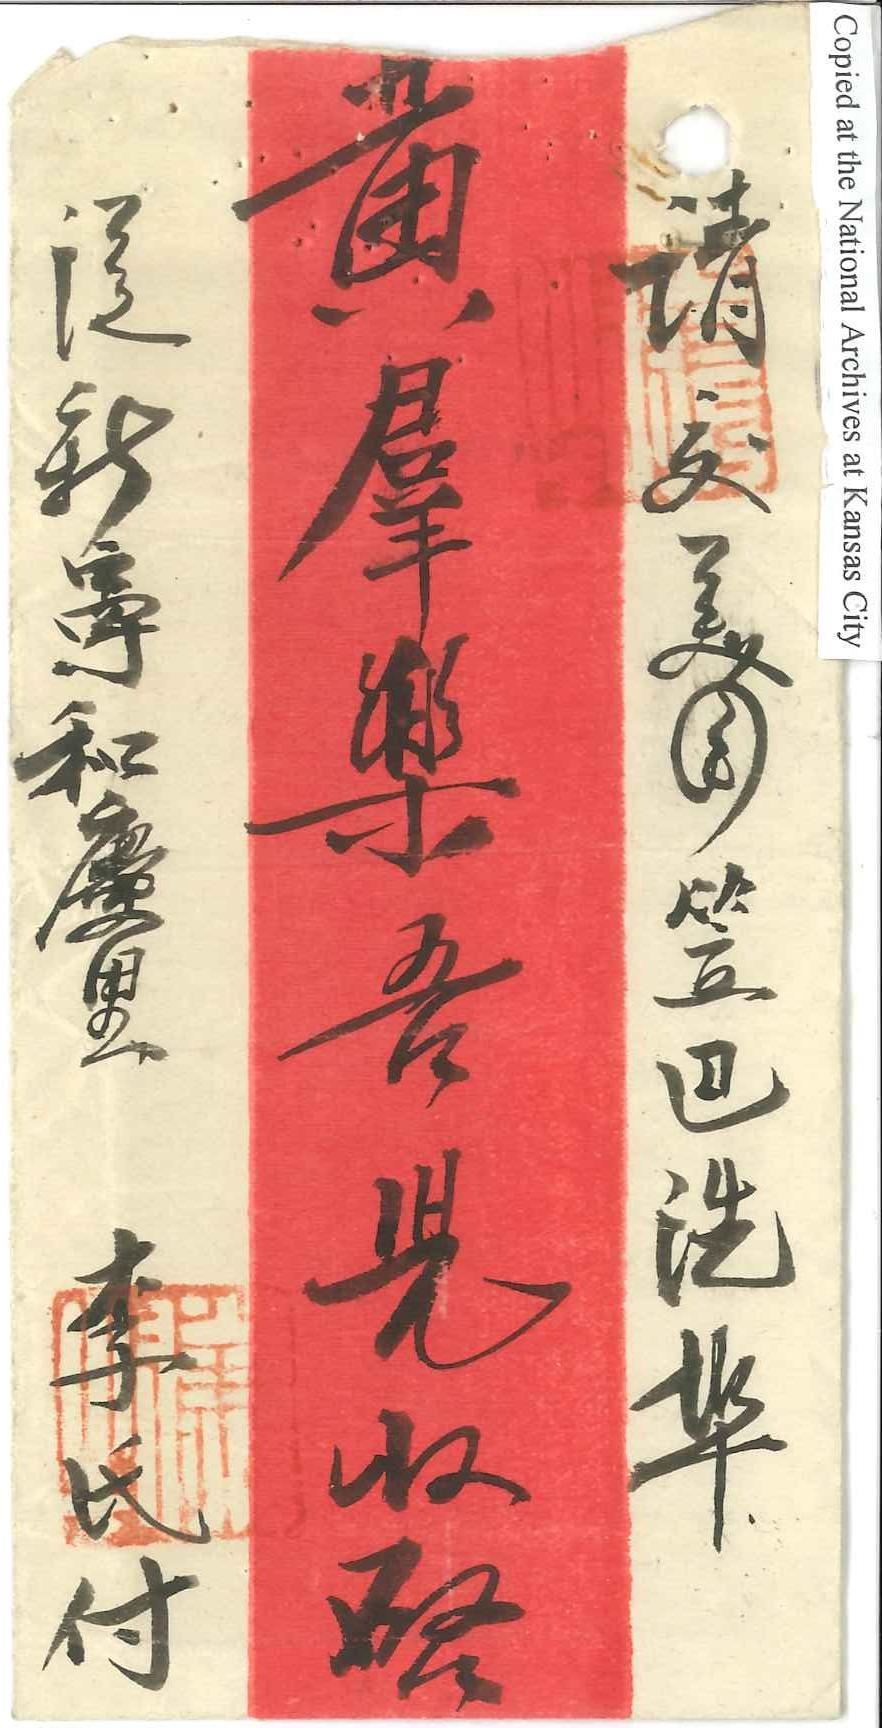 Copied at the National Archives at Kansas City
請交美國笠巴洗埠
黃羣樂吾兒收啓
從新寧和慶里 李氏付